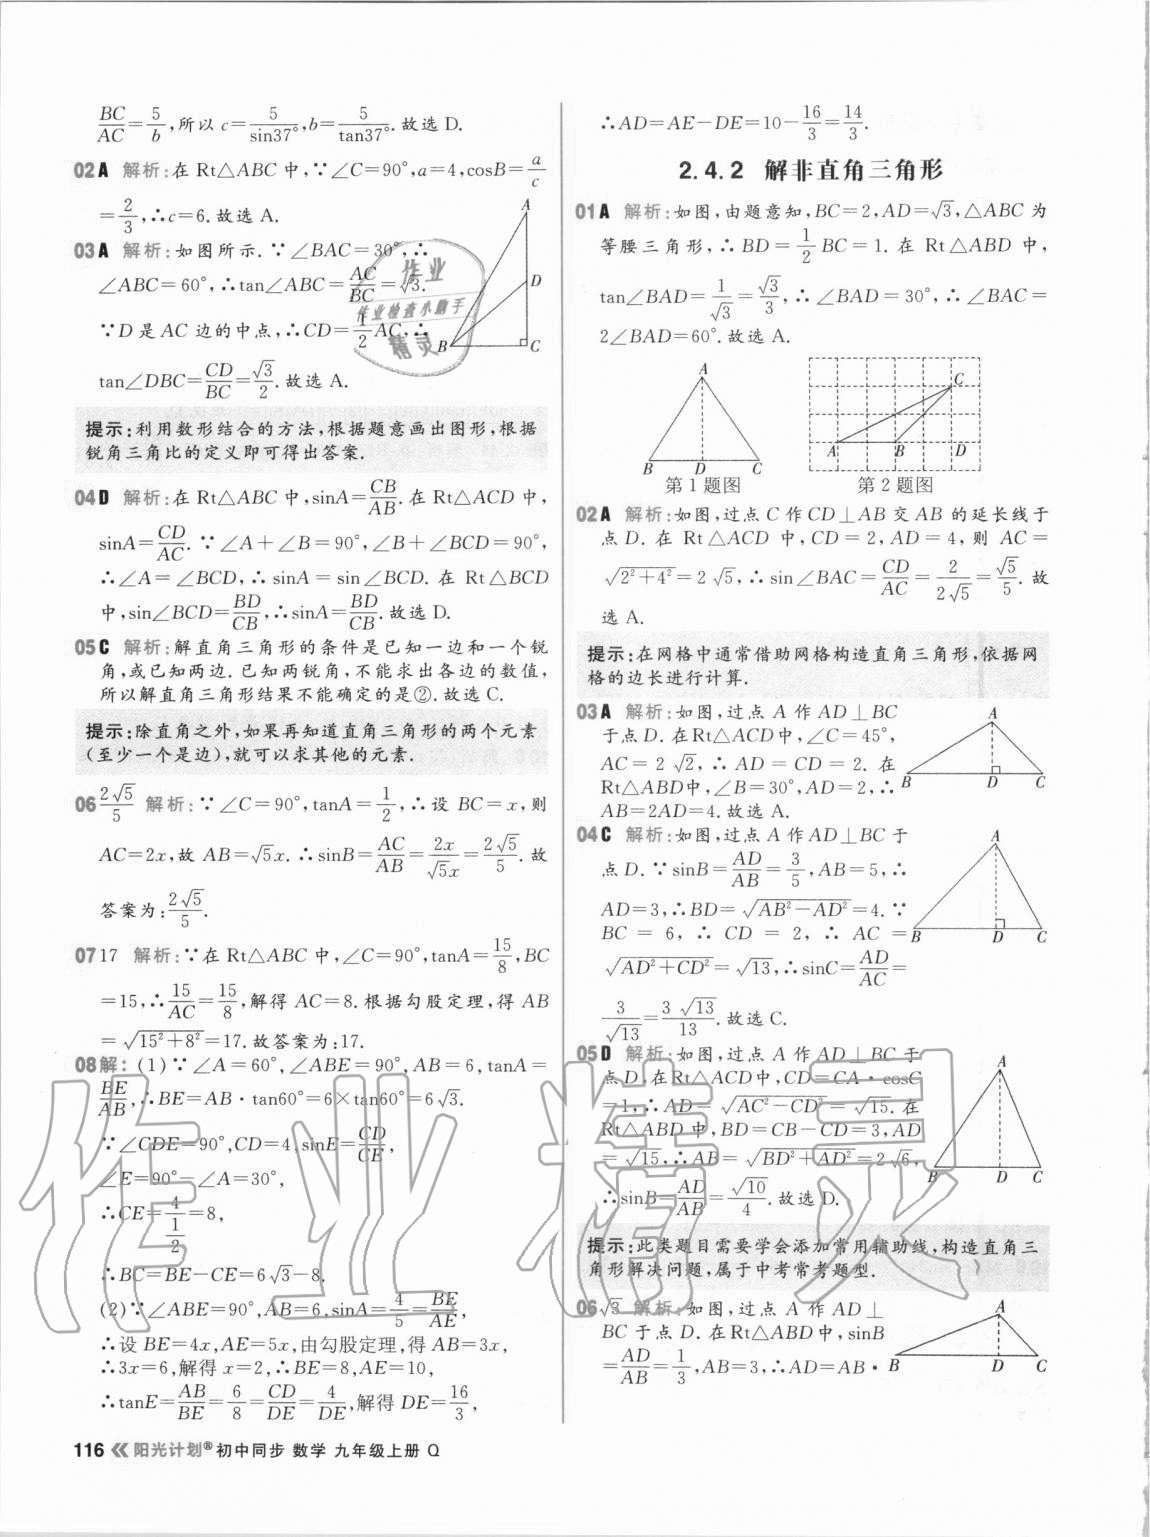 BC/AC=5/b,所以 c=5/sin37°,b=5/tan37°.故选 D.
02 A 解析:在 Rt△ABC 中,∵∠C=90°,a=4,cosB=a/c
=2/3,∴c=6.故选 A.
03 A 解析:如图所示.∵∠BAC=30°,∴
∠ABC=60°,∴tan∠ABC=AC/BC=√3.
∵D 是 AC 边的中点,∴CD=1/2AC,∴
tan∠DBC=CD/BC=√3/2.故选 A.
A
D
B
C
提示:利用数形结合的方法,根据题意画出图形,根据
锐角三角比的定义即可得出答案.
04 D 解析:在 Rt△ABC 中,sinA=CB/AB.在 Rt△ACD 中,
sinA=CD/AC.∵∠A+∠B=90°,∠B+∠BCD=90°,
∴∠A=∠BCD,∴sinA=sin∠BCD.在 Rt△BCD
中,sin∠BCD=BD/CB,∴sinA=BD/CB.故选 D.
05 C 解析:解直角三角形的条件是已知一边和一个锐
角,或已知两边.已知两锐角,不能求出各边的数值,
所以解直角三角形结果不能确定的是②.故选 C.
提示:除直角之外,如果再知道直角三角形的两个元素
(至少一个是边),就可以求其他的元素.
06 2√5/5 解析:∵∠C=90°,tanA=1/2,∴设 BC=x,则
AC=2x,故 AB=√5x.∴sinB=AC/AB=2x/√5x=2√5/5.故
答案为:2√5/5.
07 17 解析:∵在 Rt△ABC 中,∠C=90°,tanA=15/8,BC
=15,∴15/AC=15/8,解得 AC=8.根据勾股定理,得 AB
=√(15²+8²)=17.故答案为:17.
08 解:(1)∵∠A=60°,∠ABE=90°,AB=6,tanA=
BE/AB,∴BE=AB·tan60°=6×tan60°=6√3.
∵∠CDE=90°,CD=4,sinE=CD/CE,
∠E=90°-∠A=30°,
∴CE=4/(1/2)=8,
∴BC=BE-CE=6√3-8.
(2)∵∠ABE=90°,AB=6,sinA=4/5=BE/AE,
∴设 BE=4x,AE=5x,由勾股定理,得 AB=3x,
∴3x=6,解得 x=2,∴BE=8,AE=10,
∴tanE=AB/BE=6/8=CD/DE=4/DE,解得 DE=16/3,
∴AD=AE-DE=10-16/3=14/3.
2.4.2 解非直角三角形
01 A 解析:如图,由题意知,BC=2,AD=√3,△ABC 为
等腰三角形,∴BD=1/2BC=1.在 Rt△ABD 中,
tan∠BAD=1/√3=√3/3,∴∠BAD=30°,∴∠BAC=
2∠BAD=60°.故选 A.
A
B D C
第 1 题图
C
A B D
第 2 题图
02 A 解析:如图,过点 C 作 CD⊥AB 交 AB 的延长线于
点 D.在 Rt△ACD 中,CD=2,AD=4,则 AC=
√(2²+4²)=2√5,∴sin∠BAC=CD/AC=2/2√5=√5/5.故
选 A.
提示:在网格中通常借助网格构造直角三角形,依据网
格的边长进行计算.
03 A 解析:如图,过点 A 作 AD⊥BC
于点 D.在Rt△ACD中,∠C=45°,
AC=2√2,∴AD=CD=2.在
Rt△ABD中,∠B=30°,AD=2,∴
AB=2AD=4.故选 A.
A
B D C
04 C 解析:如图,过点 A 作 AD⊥BC 于
点 D.∵sinB=AD/AB=3/5,AB=5,∴
AD=3,∴BD=√(AB²-AD²)=4.∵
BC=6,∴CD=2,∴AC=
√(AD²+CD²)=√13,∴sinC=AD/AC=
3/√13=3√13/13.故选 C.
A
B D C
05 D 解析:如图,过点 A 作 AD⊥BC 于
点 D,在Rt△ACD中,CD=CA·cosC
=1,∴AD=√(AC²-CD²)=√15.在
Rt△ABD 中,BD=CB-CD=3,AD
=√15,∴AB=√(BD²+AD²)=2√6,
∴sinB=AD/AB=√10/4.故选 D.
A
B D C
提示:此类题目需要学会添加常用辅助线,构造直角三
角形解决问题,属于中考常考题型.
06 √3 解析:如图,过点 A 作 AD⊥
BC 于点 D.在Rt△ABD中,sinB
=AD/AB=1/3,AB=3,∴AD=AB·
A
B D C
116 阳光计划® 初中同步 数学 九年级上册 Q
作业
作业检查小助手
精灵
作业精灵